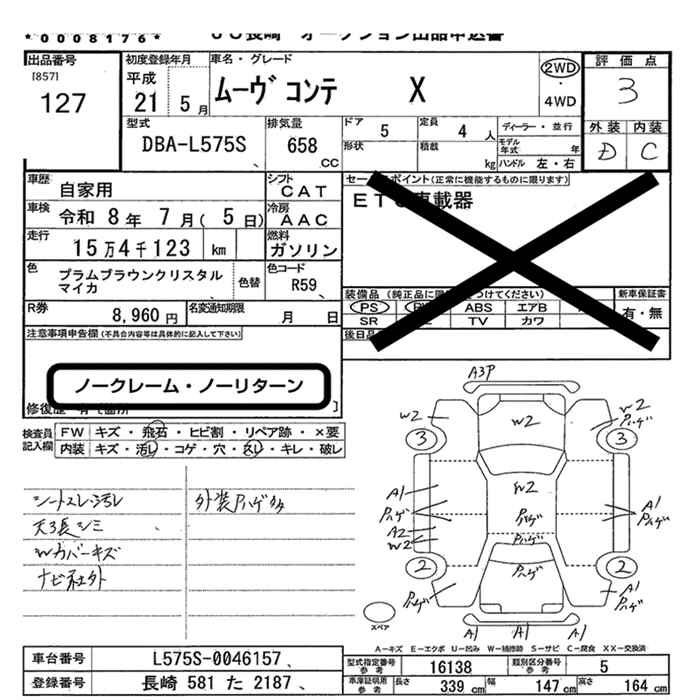 *0008176*
JU長崎 オークション出品申込書
出品番号
[857]
127
初度登録年月
平成
21 5月
車名・グレード
ムーヴ コンテ X
2WD
・
4WD
評価点
3
外装 内装
D C
型式
DBA-L575S
排気量
658
CC
ドア 5
定員 4人
ディーラー・並行
形状
積載 kg
モデル年式 年
ハンドル 左・右
車歴
自家用
シフト
CAT
車検
令和 8年 7月( 5日)
冷房
AAC
走行
15万4千123 km
燃料
ガソリン
色
プラムブラウンクリスタル
マイカ
色替
色コード
R59
セールスポイント(正常に機能するものに限ります)
車載器
装備品
PS ABS エアB
SR TV カワ
新車保証書
有・無
R券
8,960円
名変通知期限
月 日
注意事項申告欄(不具合内容等は具体的に記入して下さい)
ノークレーム・ノーリターン
検査員
記入欄
FW キズ・飛石・ヒビ割・リペア跡・×要
内装 キズ・汚レ・コゲ・穴・スレ・キレ・破レ
シートスレ・汚レ
天張シミ
Wカバーキズ
ナビ社外
外装Pハゲ多
A3P
W2 W2 W2 Pハゲ
3 3
A1 W2 A1
Pハゲ Pハゲ Pハゲ
A2 Pハゲ
W2
2 Pハゲ 2
Pハゲ Pハゲ
A1 A1 A1
スペア
A-キズ E-エクボ U-凹み W-補修跡 S-サビ C-腐食 XX-交換済
車台番号
L575S-0046157
登録番号
長崎 581 た 2187
型式指定番号
参考
16138
類別区分番号
参考
5
車庫証明用
参考
長さ 339cm
幅 147cm
高さ 164cm